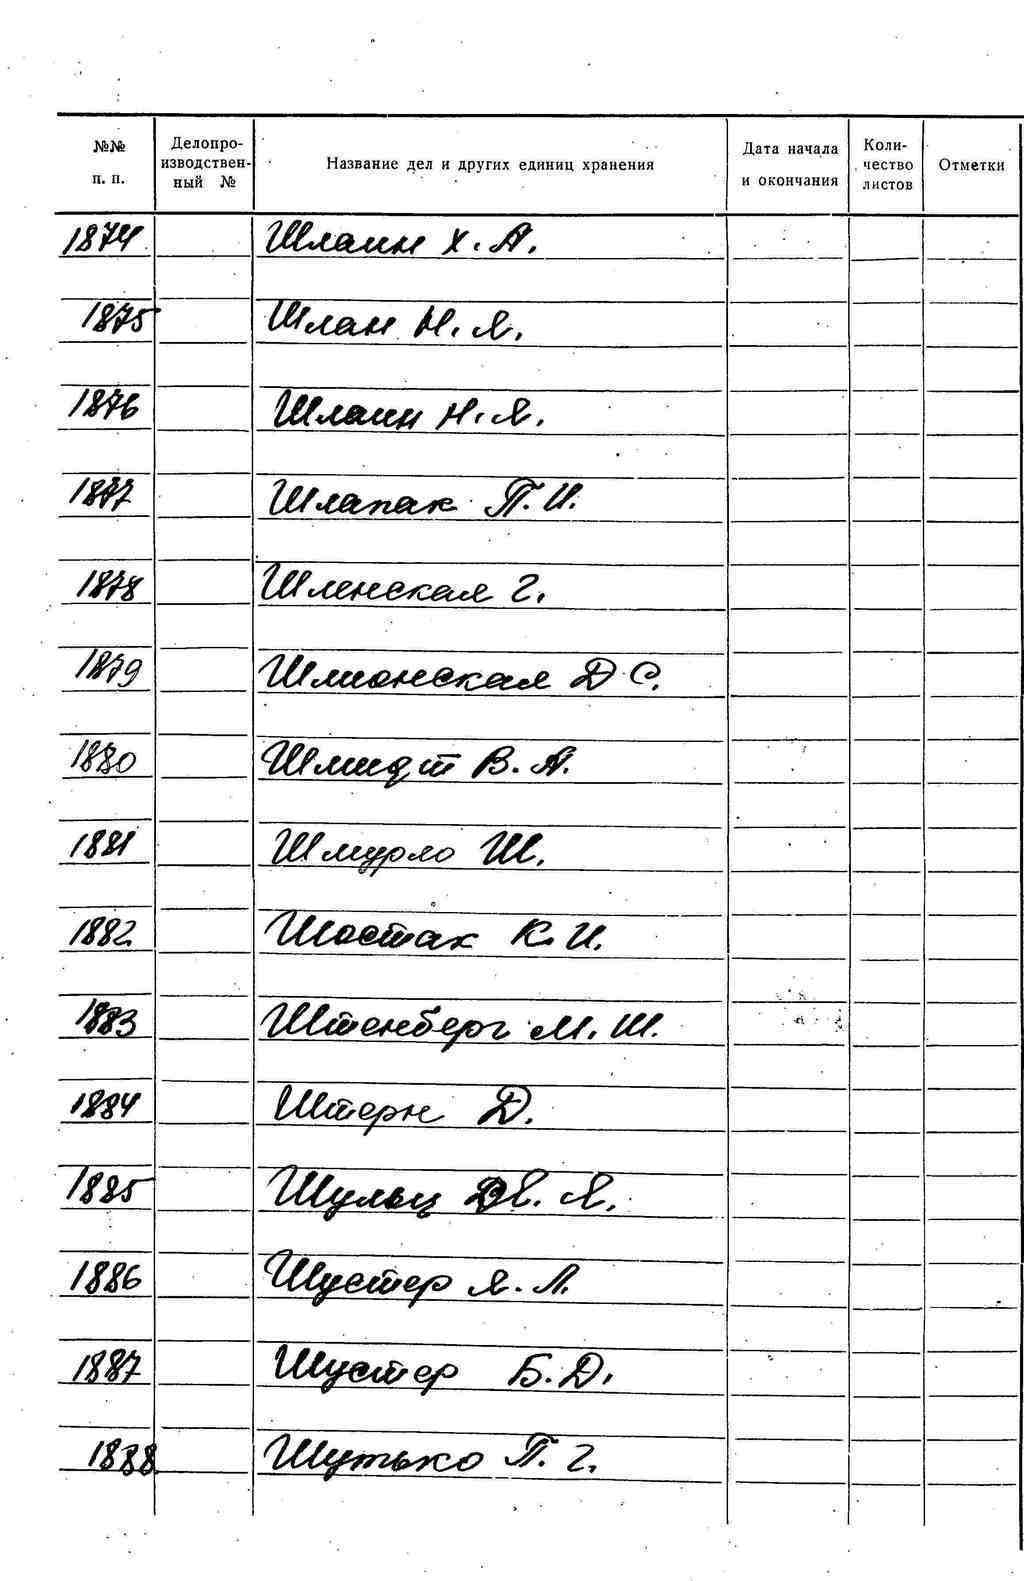 №№ п. п. Делопро-изводствен-ный № Название дел и других единиц хранения Дата начала и окончания Коли-чество листов Отметки
1874 Шлаин Х. А.
1875 Шлан Н. Я.
1876 Шлаин Н. Я.
1877 Шлапак П. И.
1878 Шленская Г.
1879 Шлионская Д С.
1880 Шмидт В. А.
1881 Шмурло Ш.
1882 Шостак К. И.
1883 Штенберг М. Ш.
1884 Штерн Д.
1885 Шульц Я.
1886 Шустер Я. Л.
1887 Шустер Б. Д.
1888 Шутько П. Г.